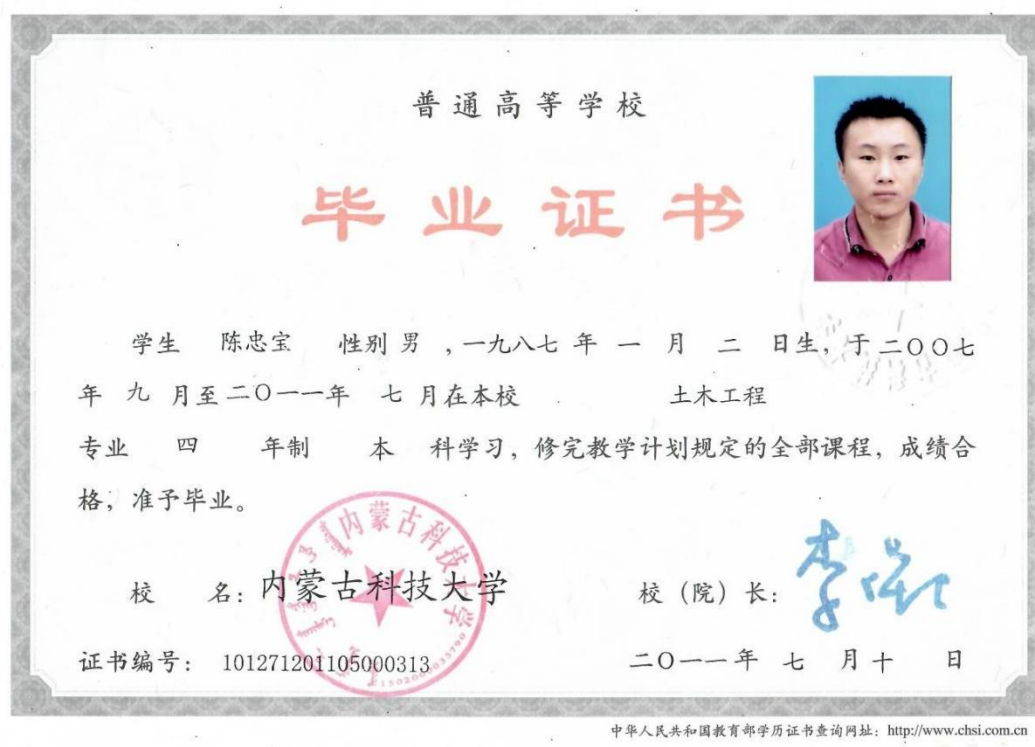 普通高等学校
毕业证书
学生 陈忠宝 性别 男 ，一九八七 年 一 月 二 日生，于二〇〇七
年 九 月至二〇一一年 七 月在本校 土木工程
专业 四 年制 本 科学习，修完教学计划规定的全部课程，成绩合
格，准予毕业。
内蒙古科技大学
校 名：内蒙古科技大学 校（院）长：
证书编号： 101271201105000313 二〇一一年 七 月十 日
中华人民共和国教育部学历证书查询网址：http://www.chsi.com.cn